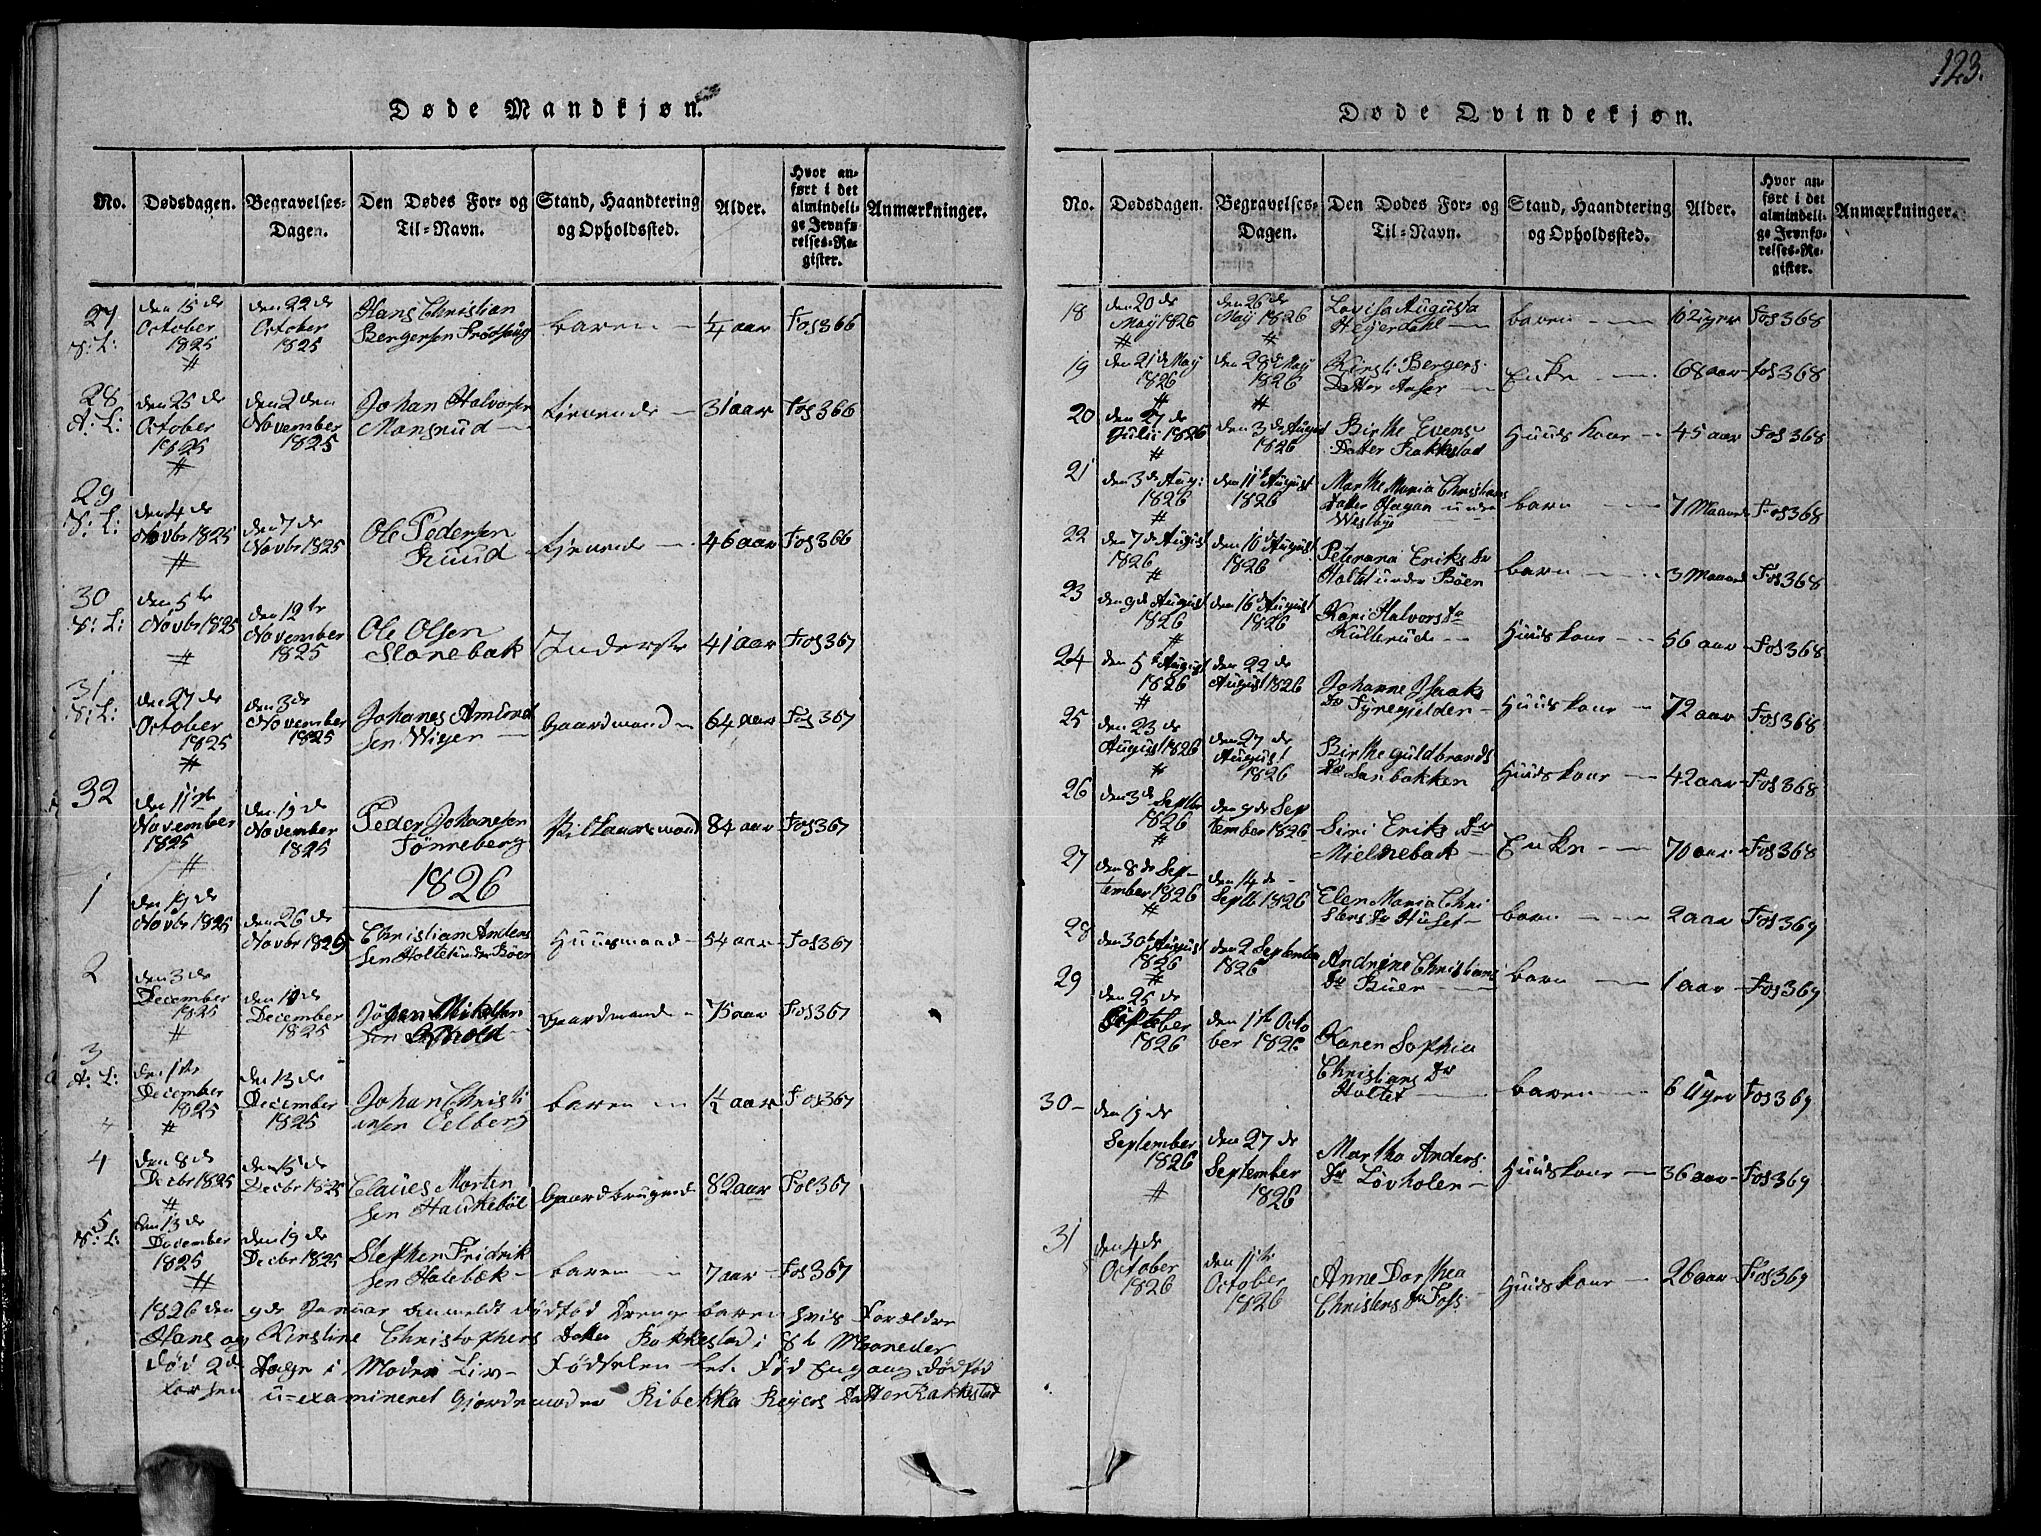 Døde Mandkjøn.
No. Dødsdagen. Begravelses-Dagen. Den Dødes For- og Til-Navn. Stand, Haandtering og Opholdssted. Alder. Hvor anført i det almindelige Jevnførelses-Register. Anmærkninger.
27
den 15 de
October
1825
den 22 de
October
1825
Hans Christian
Bergersen
baren
1/4 aar
Fos 366
28
A: L:
den 25 de
October
1825
den 2 den
November
1825
Johan Halvorsen
Mangnud
tienende
31 aar
Fos 366
29
den 4 de
Novbr 1825
den 7 de
Novbr 1825
Ole Pedersen
Ruud
tienende
46 aar
Fos 366
30
den 5 te
Novbr 1825
den 12 te
November
1825
Ole Olsen
Slonebak
Inderste
41 aar
Fos 367
31
den 27 de
October
1825
den 3 de
November
1825
Johanes Amund
sen Wiger
Gaardmand
64 aar
Fos 367
32
den 11 te
November
1825
den 19 de
November
1825
Peder Johansen
Tønneberg
84 aar
Fos 367
1826
1
den 19 de
Novbr 1825
den 26 de
Novbr 1825
Christian Anders
sen Holtet under Böer
Huusmand
54 aar
Fos 367
2
den 3 de
December
1825
den 10 de
December
1825
Jögen Mikelsen
Gaardmand
75 aar
Fos 367
3
A: L:
den 1 te
December
1825
den 13 de
December
1825
Johan Christi
ansen Eelberg
baren
1 1/2 aar
Fos 367
4
den 8 de
Decbr 1825
den 15 de
Decbr 1825
Claues Morten
sen Haukeböl
Gaardbrugende
82 aar
Fos 367
5
den 13 de
December
1825
den 19 de
Decbr 1825
Stephen Fridrik
sen Holebæk
baren
7 aar
Fos 367
1826 den 9 de Januar anmeldt dödfød Drenge baren hvis Forældre
Hans og Kirstine Christophers Datter Rakkestad i 8 te Maaneder
død 2 de Dage i Moders Liv Födselen let. Fød Engang dödfød
før sen u-examineret Gjordemoder Ribekka Reyers Datter Rakkestad
123.
Døde Qvindekjøn.
No. Dødsdagen. Begravelses-Dagen. Den Dødes For- og Til-Navn. Stand, Haandtering og Opholdssted. Alder. Hvor anført i det almindelige Jevnførelses-Register. Anmærkninger.
18
den 20 de
May 1826
den 26 de
May 1826
Lovisa Augusta
Heyerdahl
baren
6 Uger
Fos 368
19
den 21 de May
1826
den 29 de May
1826
Kirsti Bergers
Datter Anser
Enke
68 aar
Fos 368
20
den 27 de
Julii 1826
den 3 de August
1826
Birthe Evens
Datter Rakkestad
Huuskaar
45 aar
Fos 368
21
den 3 de Aug:
1826
den 11 te August
1826
Marthe Maria Christians
Datter Hagan under
Westby
baren
7 Maaned
Fos 368
22
den 7 de August
1826
den 10 de August
1826
Peterana Eriks Dr
Holtet under Böen
baren
3 Maaned
Fos 368
23
den 9 de August
1826
den 16 de August
1826
Kari Halvors Dr
Kulterud
Huuskaar
56 aar
Fos 368
24
den 5 te August
1826
den 22 de
August 1826
Johanne Isaaks
Dr Fyregielden
Huuskaar
72 aar
Fos 368
25
den 23 de
August 1826
den 27 de
August
1826
Birthe Guldbrands
Dr Sanbakken
Huuskaar
42 aar
Fos 368
26
den 3 de Septbr
1826
den 9 de Sep
tember 1826
Siri Eriks Dr
Mielnebak
Enke
70 aar
Fos 368
27
den 8 de Sep-
tember 1826
den 14 de
Septb 1826
Elen Maria Chri
stens Dr Huset
baren
2 aar
Fos 369
28
den 30 te August
1826
den 2 September
1826
Andrine Christians
Dr Buer
baren
1 aar
Fos 369
29
den 25 de
September
1826
den 1 te Octo
ber 1826
Karen Sophia
Christians Dr
Holtet
baren
6 Uger
Fos 369
30
den 19 de
September
1826
den 27 de
September
1826
Martha Anders
Dr Lövholen
Huuskaar
36 aar
Fos 369
31
den 4 de
October
1826
den 11 te
October
1826
Anne Dorthea
Christens Dr Foss
Huuskaar
26 aar
Fos 369